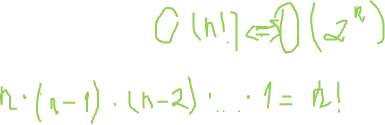 O(n!) <=> O(2^n)
n·(n-1)·(n-2)·...·1 = n!